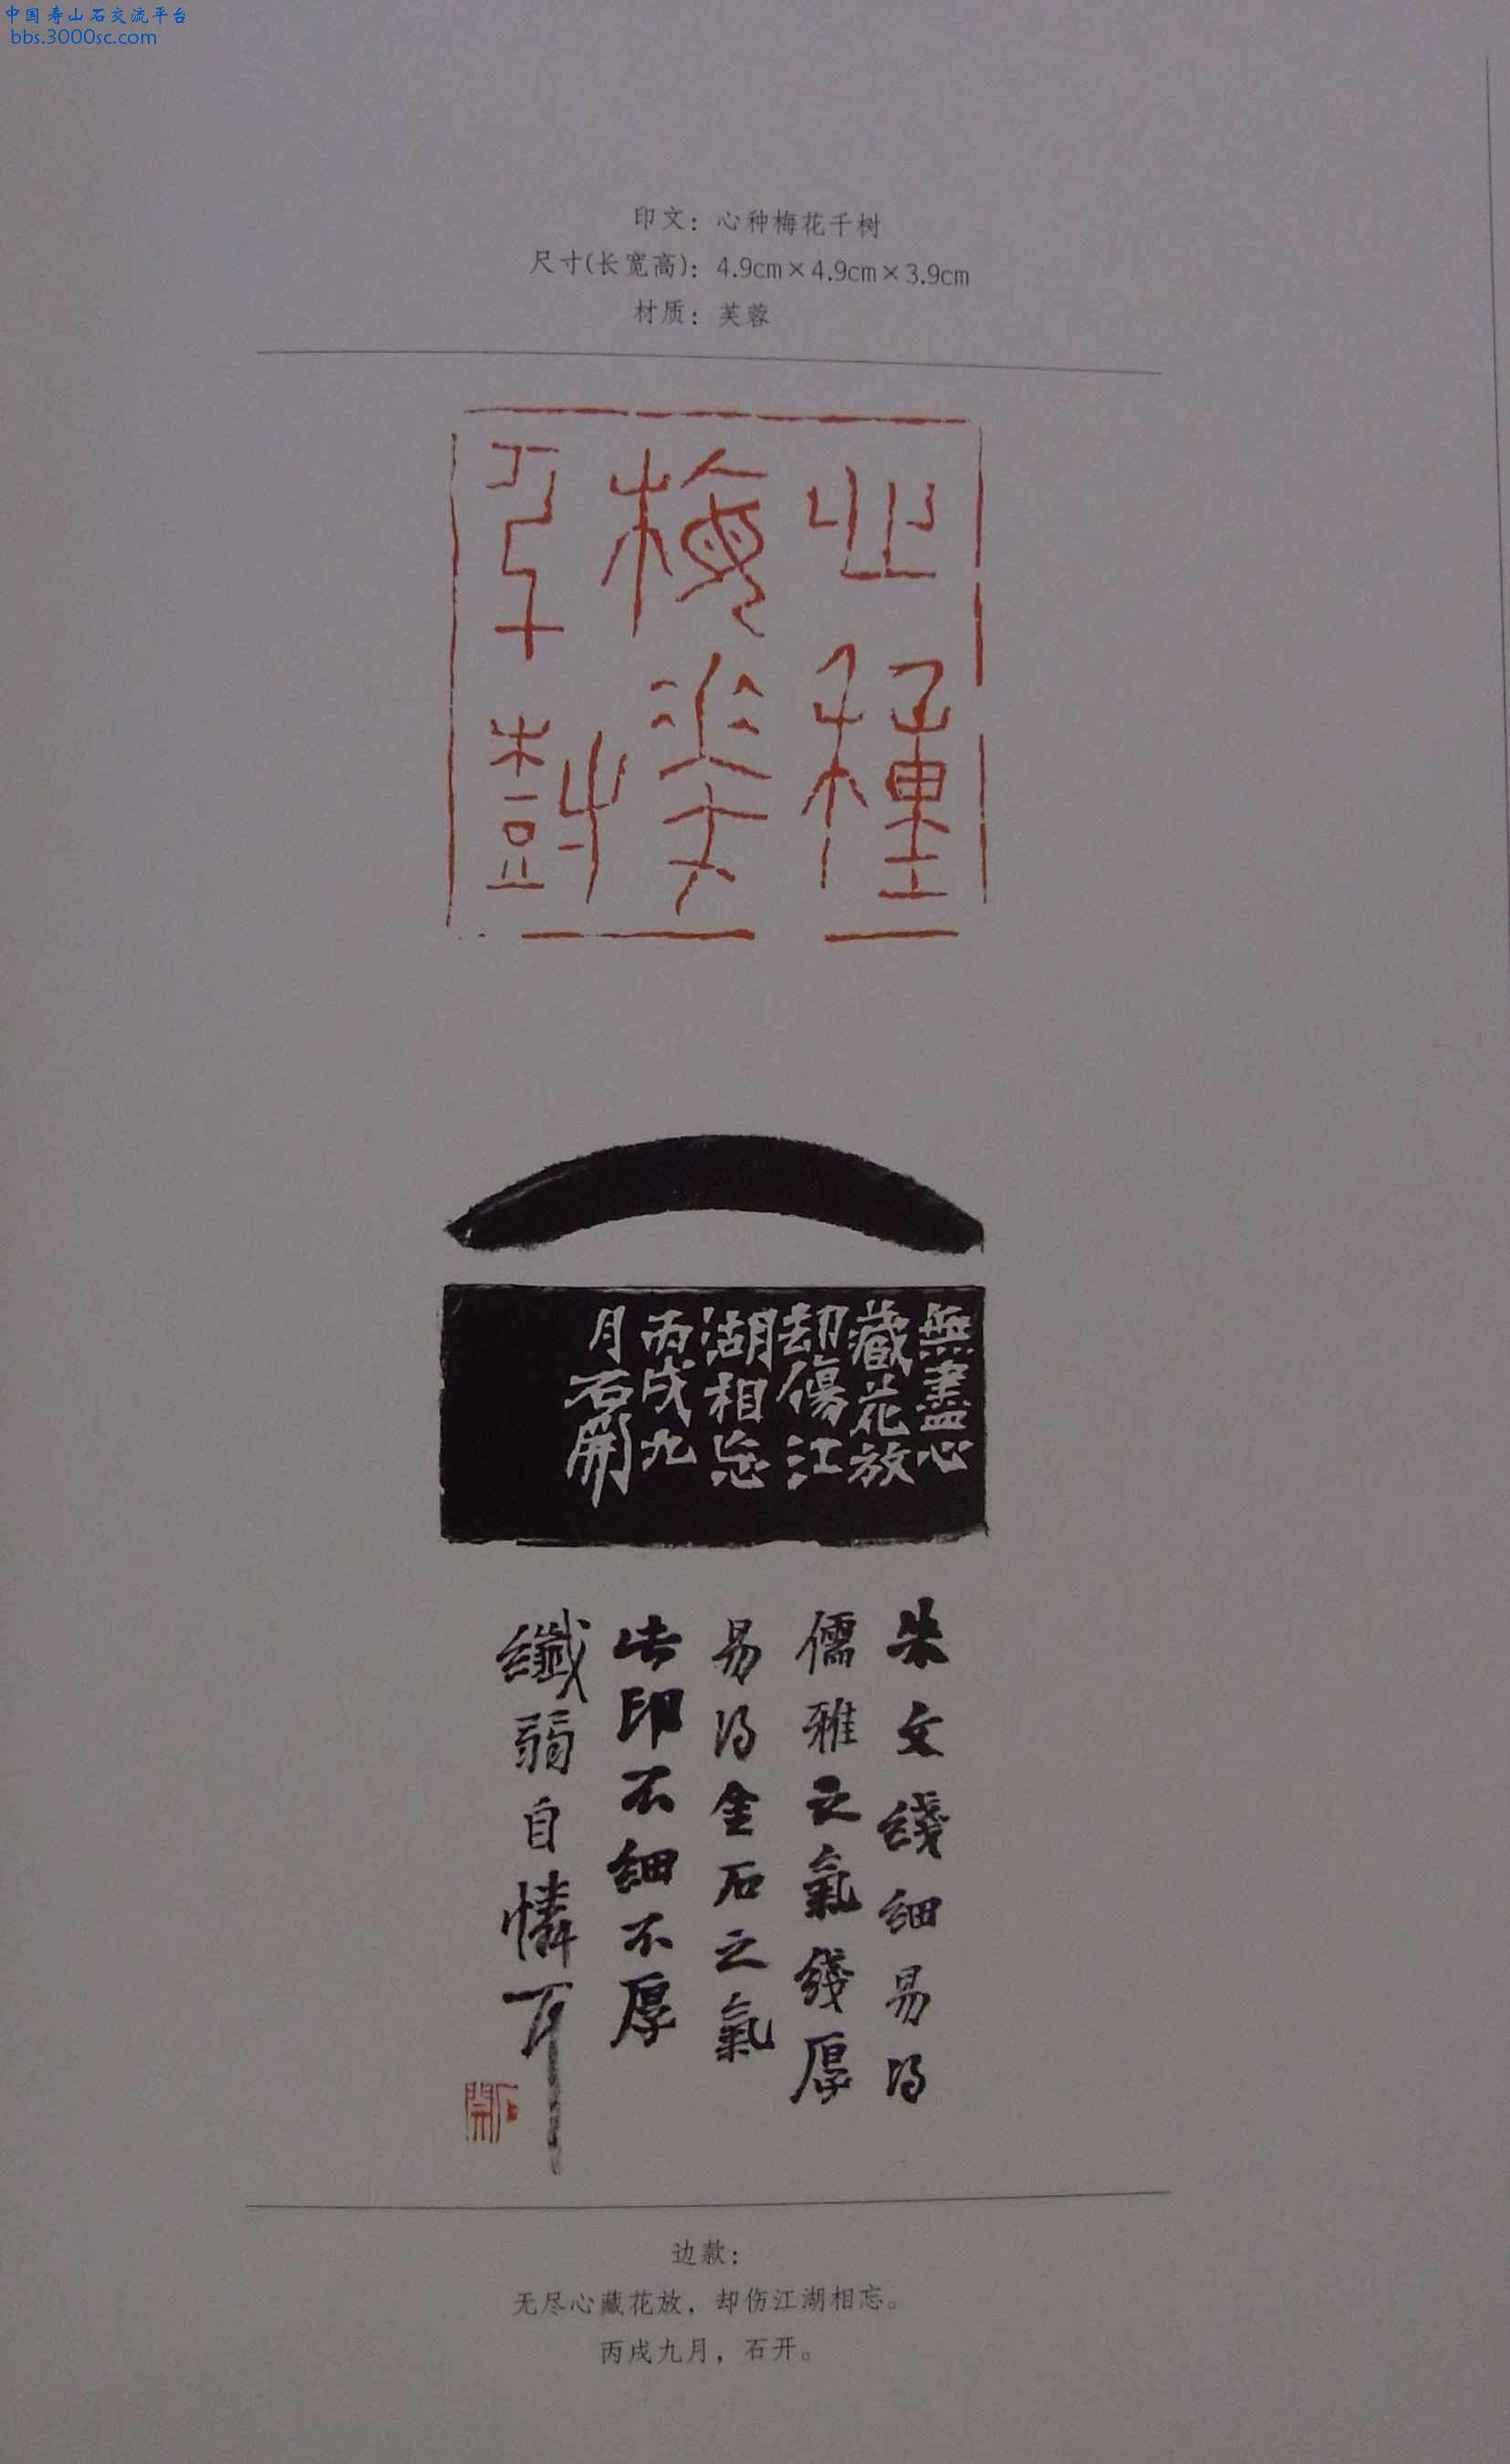 中国寿山石交流平台
bbs.3000sc.com
印文：心种梅花千树
尺寸(长宽高)：4.9cm×4.9cm×3.9cm
材质：芙蓉
心種
梅華
千樹
無盡心
藏花放
却傷江
湖相忘
丙戌九
月石開
朱文綫細易得
儒雅之氣綫厚
易得金石之氣
此印不細不厚
纖弱自憐耳
石開
边款：
无尽心藏花放，却伤江湖相忘。
丙戌九月，石开。